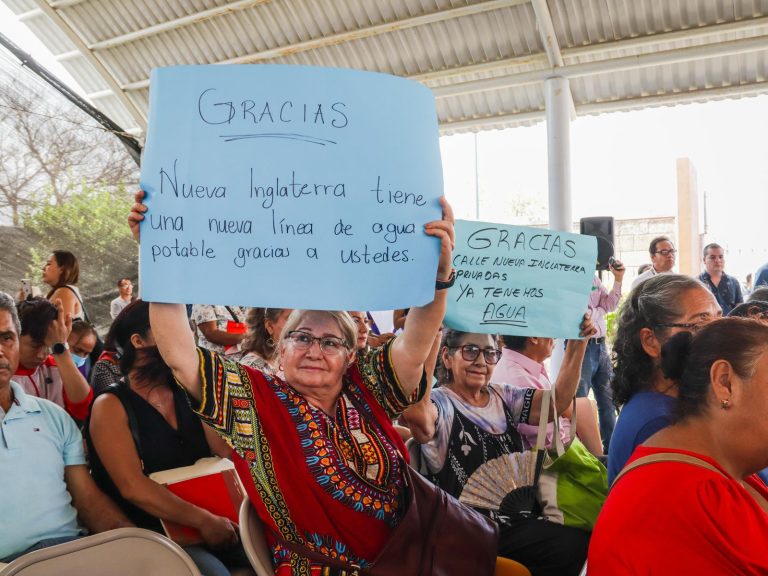 GRACIAS
Nueva Inglaterra tiene
una nueva línea de agua
potable gracias a ustedes.
GRACIAS
CALLE NUEVA INGLATERRA
PRIVADAS
YA TENEMOS
AGUA